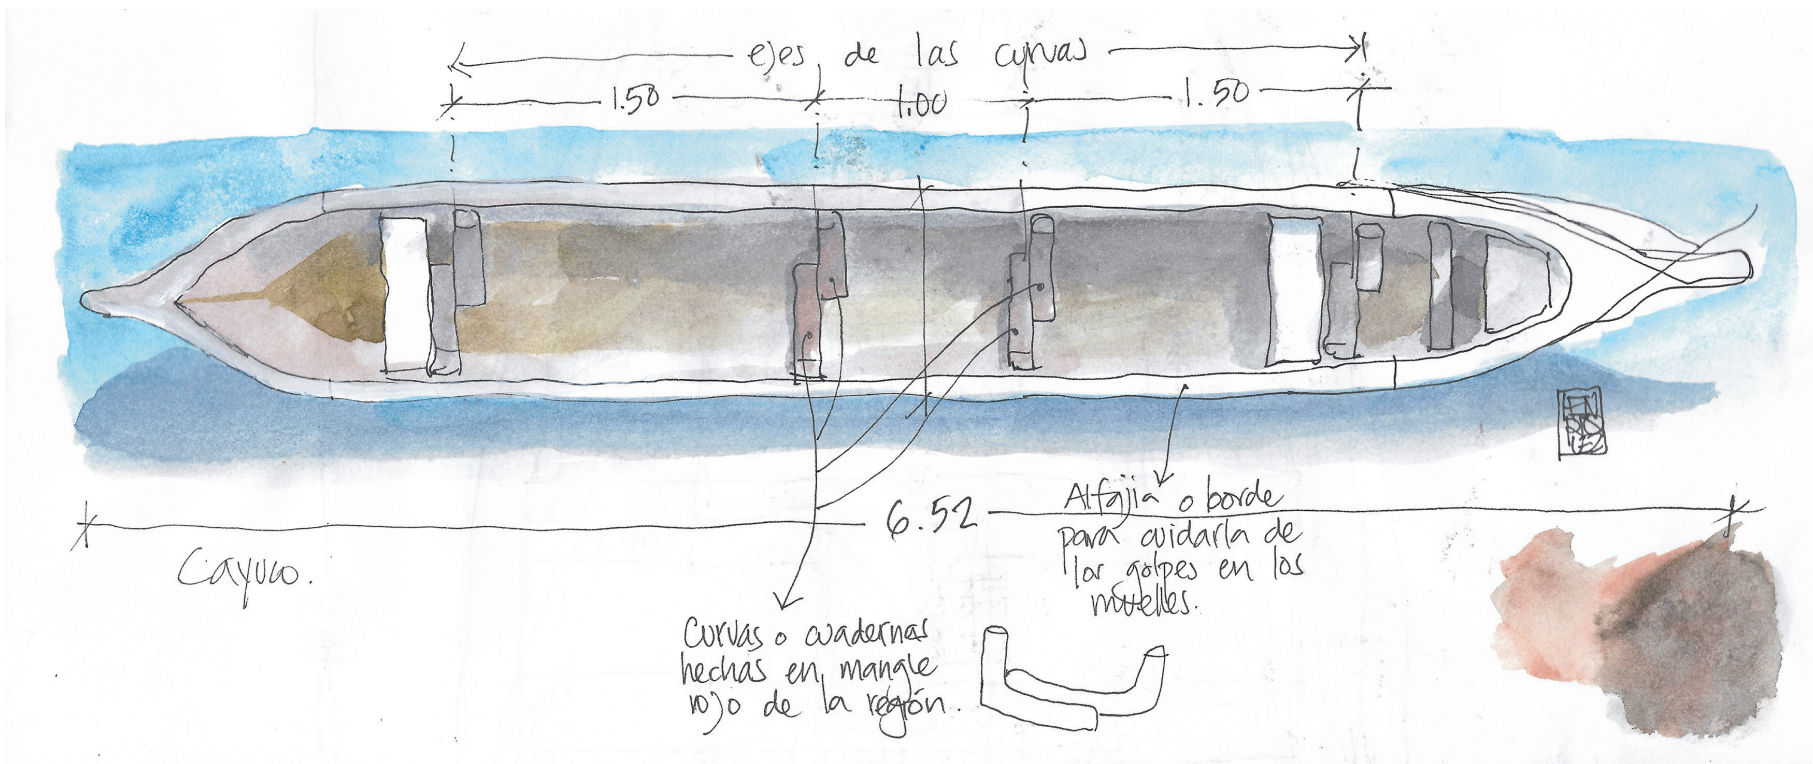 ejes de las curvas
1.50
1.00
1.50
6.52
Cayuco.
Alfajia o borde
para cuidarla de
los golpes en los
muelles.
Curvas o cuadernas
hechas en mangle
rojo de la región.